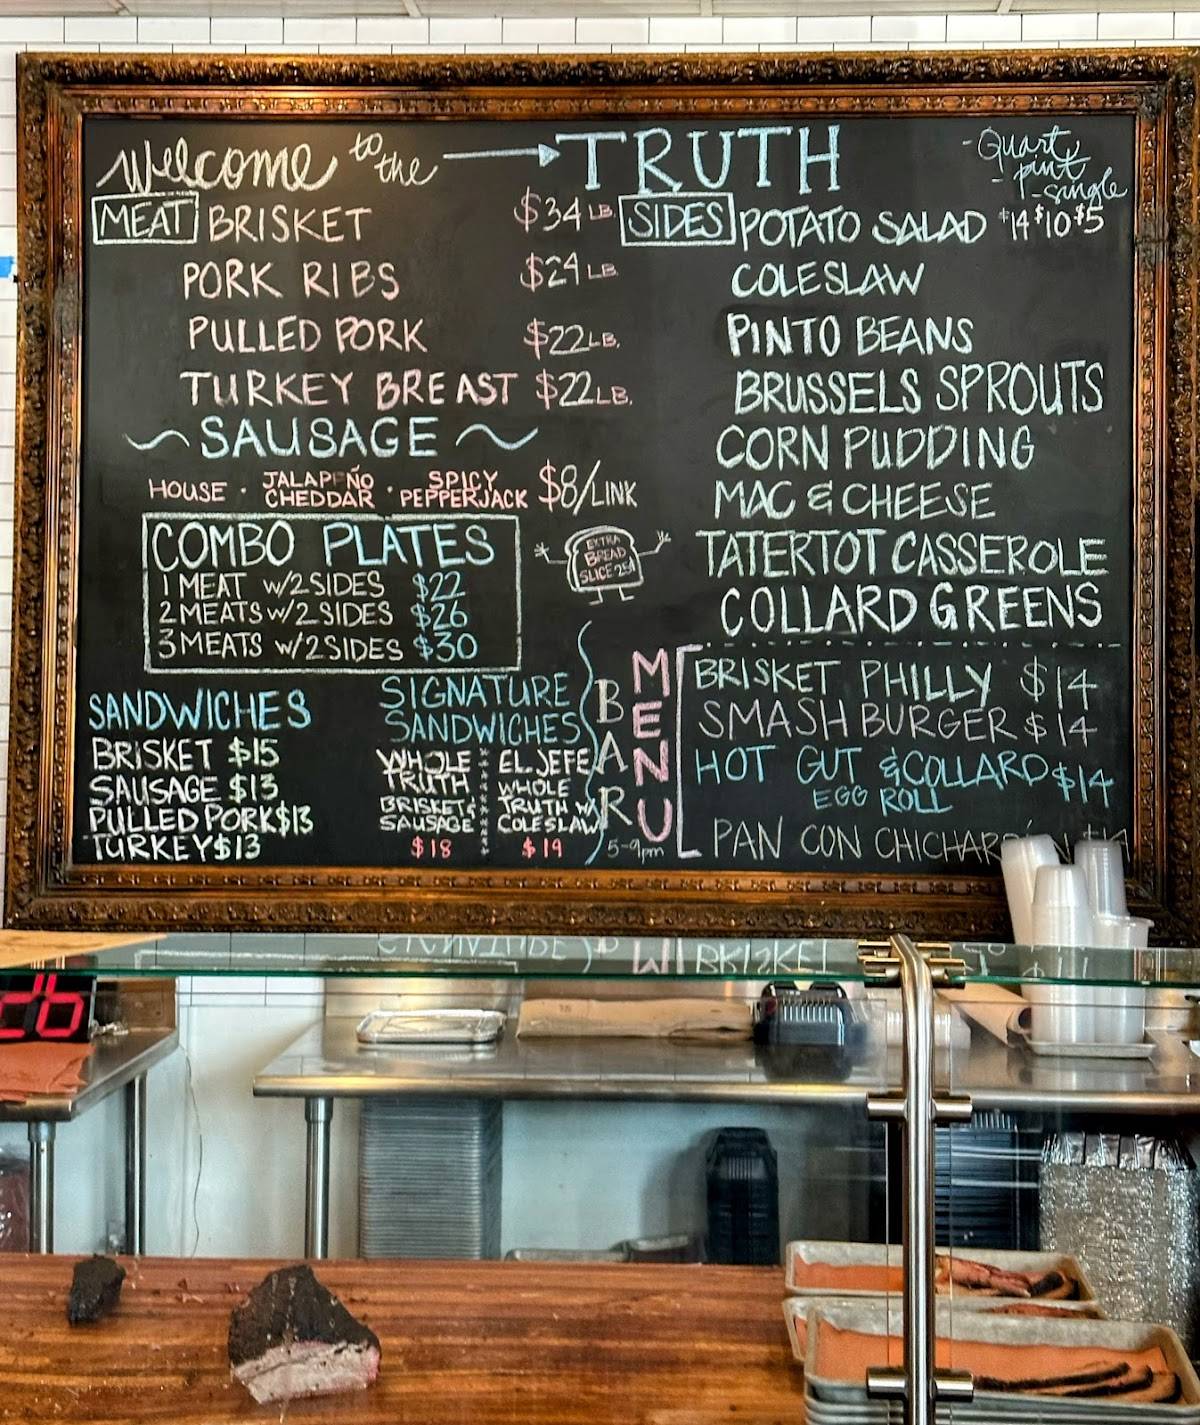 Welcome to the → TRUTH
- Quart
- pint
- single
MEAT BRISKET $34 LB
PORK RIBS $24 LB.
PULLED PORK $22 LB.
TURKEY BREAST $22 LB.
~ SAUSAGE ~
HOUSE · JALAPEÑO CHEDDAR · SPICY PEPPERJACK $8/LINK
COMBO PLATES
1 MEAT w/2 SIDES $22
2 MEATS w/2 SIDES $26
3 MEATS w/2 SIDES $30
EXTRA
BREAD
SLICE 25¢
SANDWICHES
BRISKET $15
SAUSAGE $13
PULLED PORK $13
TURKEY $13
SIGNATURE
SANDWICHES
WHOLE
TRUTH
BRISKET &
SAUSAGE
$18
EL JEFE
WHOLE
TRUTH W/
COLESLAW
$19
SIDES POTATO SALAD $14 $10 $5
COLESLAW
PINTO BEANS
BRUSSELS SPROUTS
CORN PUDDING
MAC & CHEESE
TATERTOT CASSEROLE
COLLARD GREENS
BAR MENU
5-9pm
BRISKET PHILLY $14
SMASH BURGER $14
HOT GUT & COLLARD $14
EGG ROLL
PAN CON